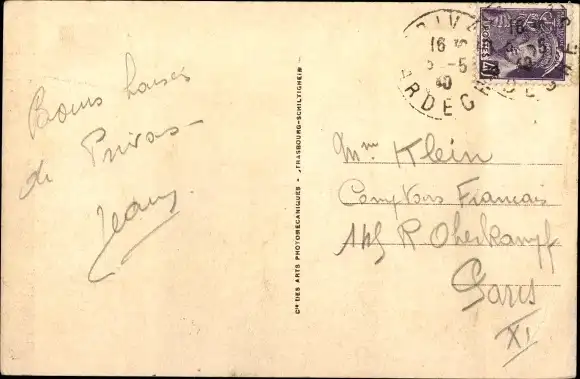 Bons baisers
de Privas
Jeany
Cie DES ARTS PHOTOMÉCANIQUES - STRASBOURG-SCHILTIGHEIM
PRIVAS
16 35
6 -5
40
ARDECHE
Mme Klein
Comptoirs Francais
145 R Oberkampf
Paris
XI